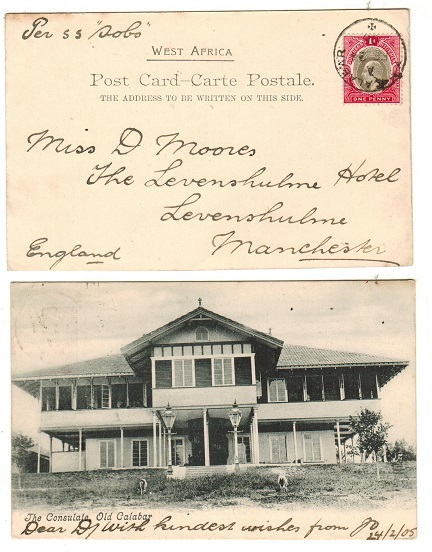 Per SS "Sobo"
WEST AFRICA
Post Card–Carte Postale.
THE ADDRESS TO BE WRITTEN ON THIS SIDE.
ONE PENNY
Miss D Moores
The Levenshulme Hotel
Levenshulme
England Manchester
The Consulate, Old Calabar
Dear D/ With kindest wishes from
24/2/05